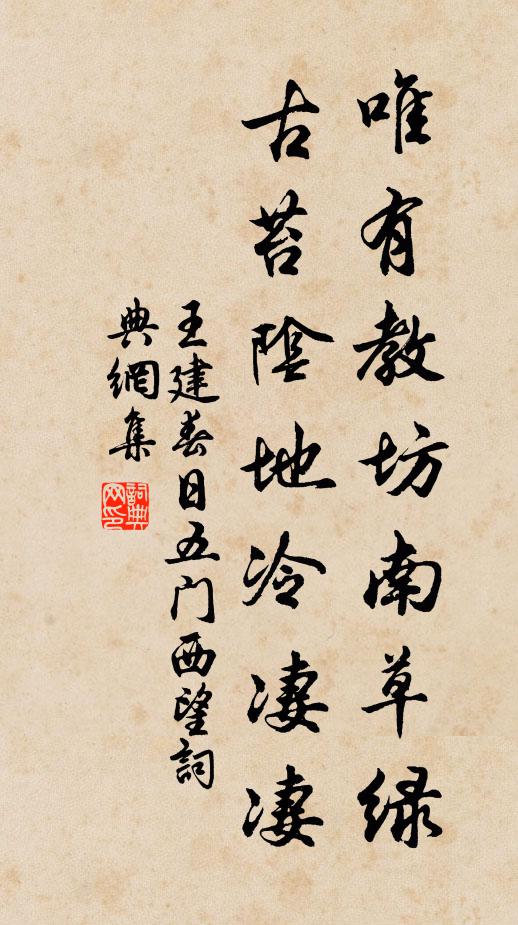 唯有教坊南草绿
古苔陰地冷凄凄
王建春日五门西望詞
典網集
詞典网印